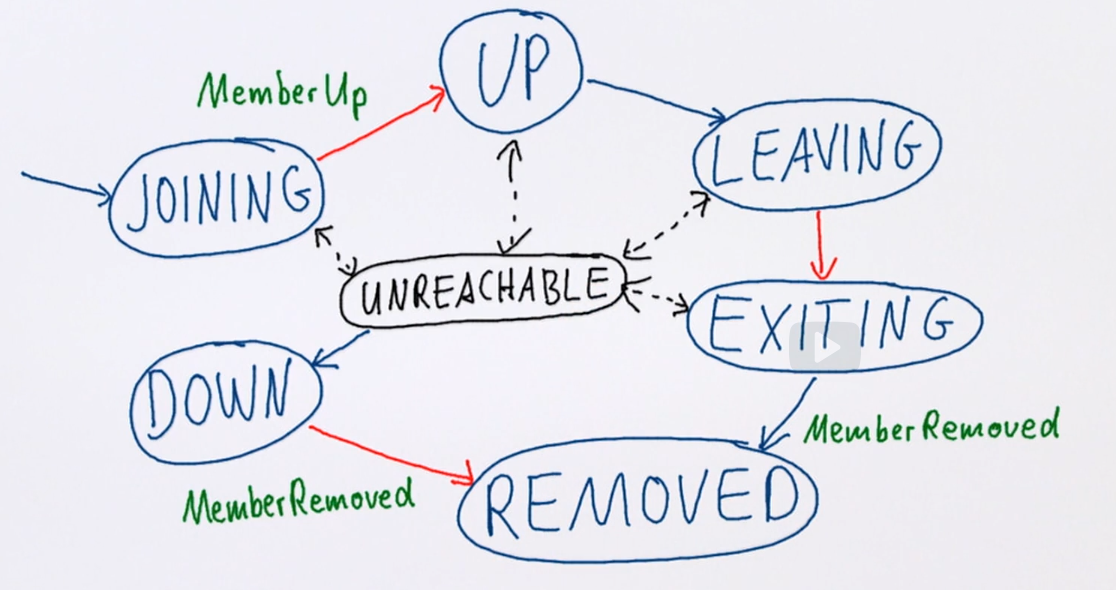 UP
MemberUp
LEAVING
JOINING
UNREACHABLE
EXITING
DOWN
MemberRemoved
MemberRemoved
REMOVED